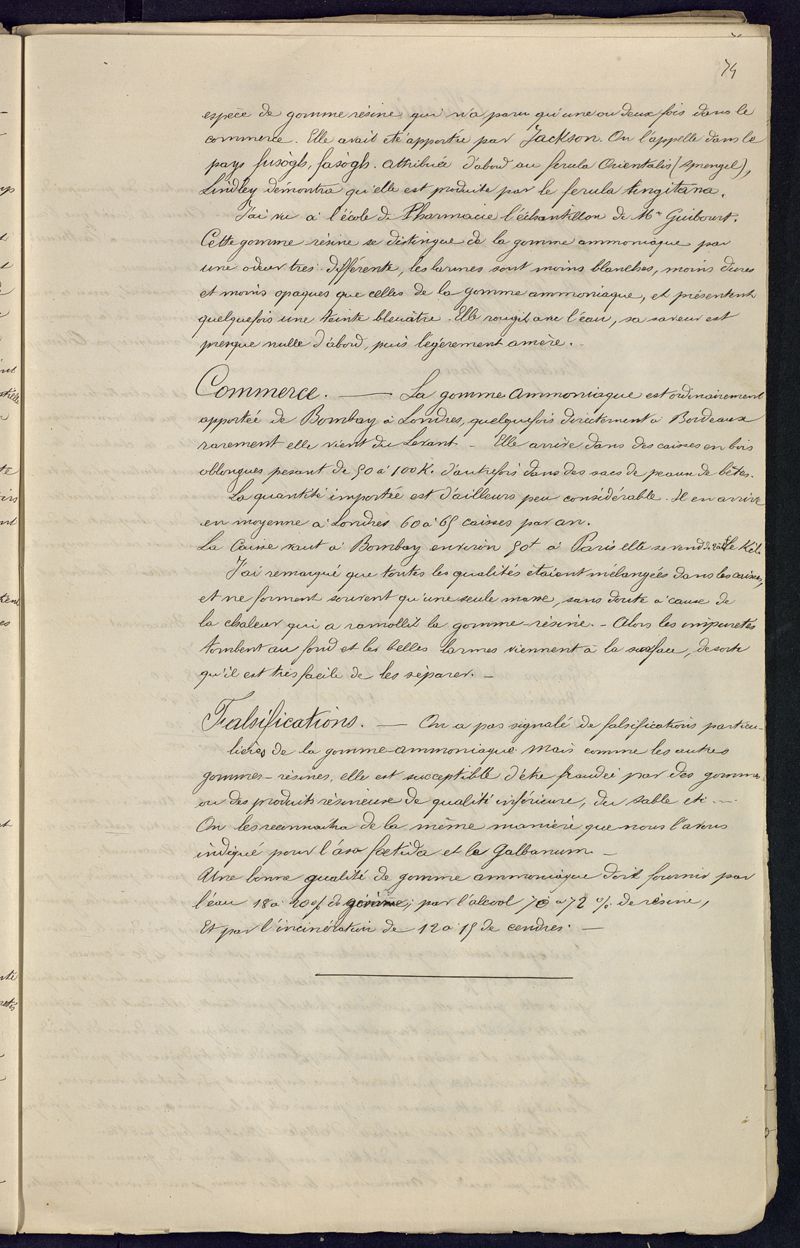 74
espèce de gomme résine qui n'a paru qu'une ou deux fois dans le
commerce. Elle avait été apportée par Jackson. On l'appelle dans le
pays fusògh, fasògh. attribuée d'abord au ferula Orientalis (Sprengel),
Lindley démontra qu'elle est produite par le ferula tingitana.
J'ai vu à l'école de Pharmacie l'échantillon de Mr Guibourt.
Cette gomme résine se distingue de la gomme ammoniaque par
une odeur très différente, les larmes sont moins blanches, moins dures
et moins opaques que celles de la gomme ammoniaque, et présentent
quelquefois une teinte bleuâtre. Elle rougit avec l'eau, sa saveur est
presque nulle d'abord, puis légèrement amère.
Commerce. — La gomme ammoniaque est ordinairement
apportée de Bombay à Londres, quelquefois directement à Bordeaux
rarement elle vient du Levant — Elle arrive dans des caisses en bois
oblongues pesant de 50 à 100 K. d'autrefois dans des sacs de peaux de bêtes.
La quantité importée est d'ailleurs peu considérable. Il en arrive
en moyenne à Londres 60 à 65 caisses par an.
La Caisse vaut à Bombay environ 50f à Paris elle se vend le Kil.
J'ai remarqué que toutes les qualités étaient mélangées dans les caisses,
et ne forment souvent qu'une seule masse, sans doute à cause de
la chaleur qui a ramolli la gomme-résine. — Alors les impuretés
tombent au fond et les belles larmes viennent à la surface, de sorte
qu'il est très facile de les séparer. —
Falsifications. — On a pas signalé de falsifications particu-
lières de la gomme-ammoniaque mais comme les autres
gommes-résines, elle est susceptible d'être fraudée par des gommes
ou des produits résineuse de qualité inférieure, du sable etc ...
On les reconnaîtra de la même manière que nous l'avons
indiqué pour l'ása foetida et le Galbanum —
Une bonne qualité de gomme ammoniaque doit fournir par
l'eau 18 à 20 % de gomme; par l'alcool 70 à 72 % de résine,
Et par l'incinération de 12 à 15 de cendres. —